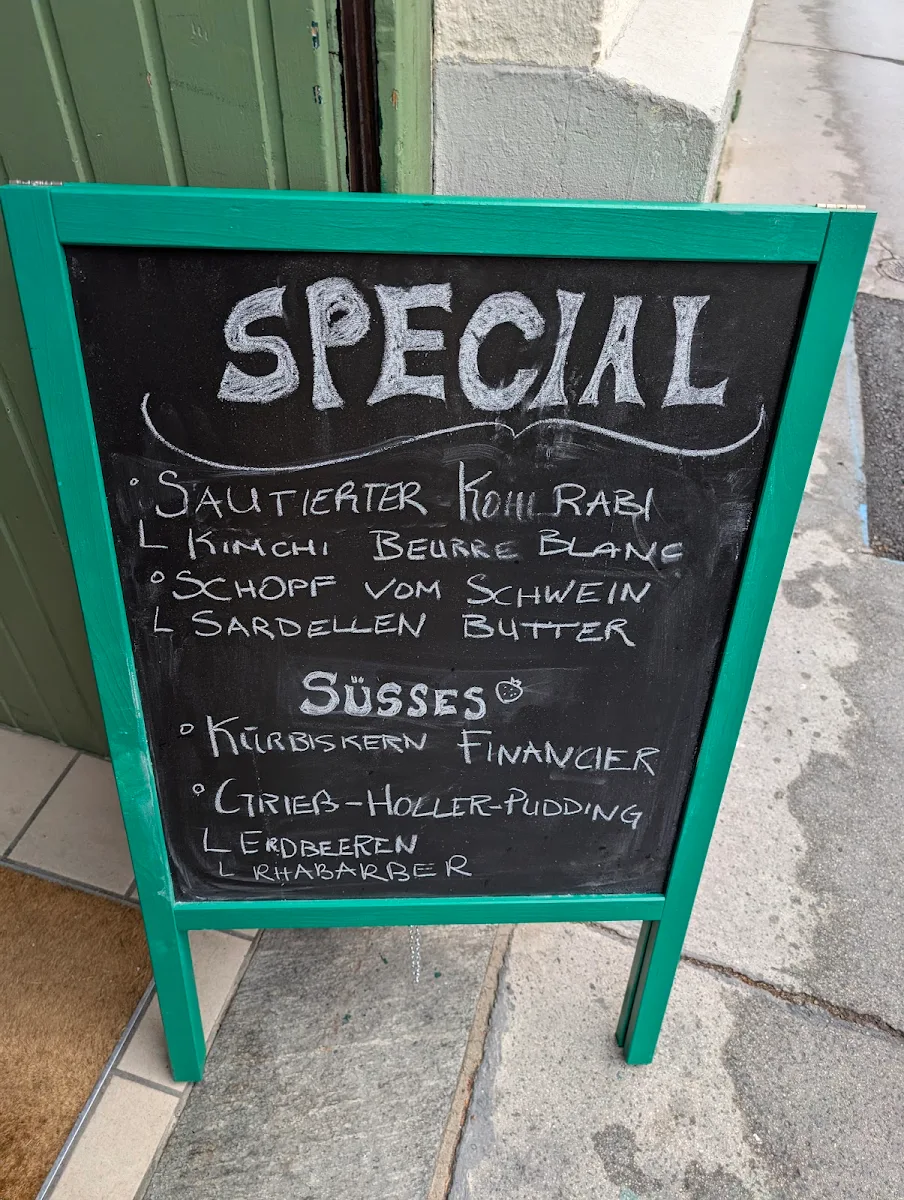 SPECIAL
° SAUTIERTER KOHLRABI
L KIMCHI BEURRE BLANC
° SCHOPF VOM SCHWEIN
L SARDELLEN BUTTER
SÜSSES
° KÜRBISKERN FINANCIER
° GRIEß-HOLLER-PUDDING
L ERDBEEREN
L RHABARBER